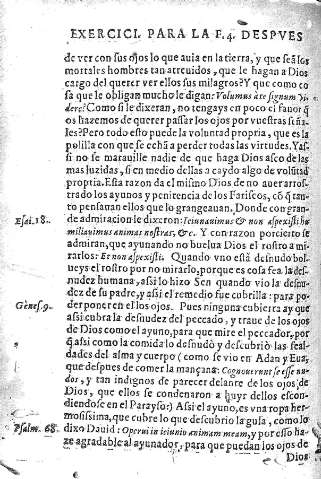 EXERCICI. PARA LA F. 4. DESPVES
de ver con sus ojos lo que auia en la tierra, y que seã los
mortales hombres tan atreuidos, que le hagan a Dios
cargo del querer ver ellos sus milagros? Y que como co
sa que le obligan mucho le digan: Volumus à te signum vi
dere? Como si le dixeran, no tengays en poco el fauor q̃
os hazemos de querer passar los ojos por vuestras señа
les? Pero todo esto puede la voluntad propria, que es la
polilla con que se echã a perder todas las virtudes. Yas-
si no se marauille nadie de que haga Dios asco de las
mas luzidas, si en medio dellas a caydo algo de volũtad
proptia. Esta razon da el mismo Dios de no auer arros-
trado los ayunos y penitencia de los Fariseos, cõ q̃ tan-
to pensauan ellos que le grangeauan. Donde con gran-
Esai. 18. de admiracion le dixeron: Ieiunauimus & non aspexisti hu
miliauimus animas nostras, &c. Y con razon por cierto se
admiran, que ayunando no buelua Dios el rostro a mi-
rarlos: Et non aspexisti. Quando vno està desnudo bol-
ueys el rostro por no mirarlo, porque es cosa fea la des-
nudez humana, assi lo hizo Sen quando vio la desnu-
Gènes. 9. dez de su padre, y assi el remedio fue cubrilla: para po-
der poner en el los ojos. Pues ninguna cubierta ay que
assi cubra la desnudez del peccador, y traue de los ojos
de Dios como el ayuno, para que mire el peccador, por
q̃ assi como la comida lo desnudò y descubriò las feal-
dades del alma y cuerpo (como se vio en Adan y Eua,
que despues de comer la mançana: Cognouerunt se esse nu-
dos, y tan indignos de parecer delante de los ojos de
Dios, que ellos se condenaron a huyr dellos escon-
diendose en el Parayso) Assi el ayuno, es vna ropa her-
mosissima, que cubre lo que descubrio la gula, como lo
Psalm. 68. dixo Dauid: Operui in ieiunio animam meam, y por esso ha-
ze agradable al ayunador, para que puedan los ojos de
Dios